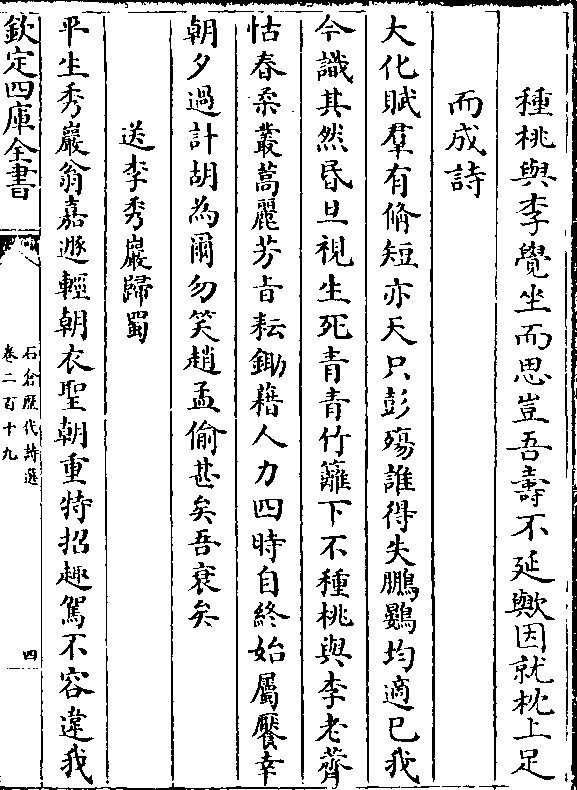 種桃與李覺坐而思豈吾壽不延歟因就枕上足
而成詩
大化賦羣有脩短亦天只彭殤誰得失鵬鷃均適已我
今識其然昏旦視生死青青竹籬下不種桃與李老薺
怙春柔叢蒿麗芳㫖耘鋤藉人力四時自終始屬饜幸
朝夕過計胡為爾勿笑趙孟偷甚矣吾衰矣
送李秀巖歸蜀
平生秀巖翁嘉遯輕朝衣聖朝重特招趣駕不容違我
欽定四庫全書
石倉歷代詩選
卷二百十九
四